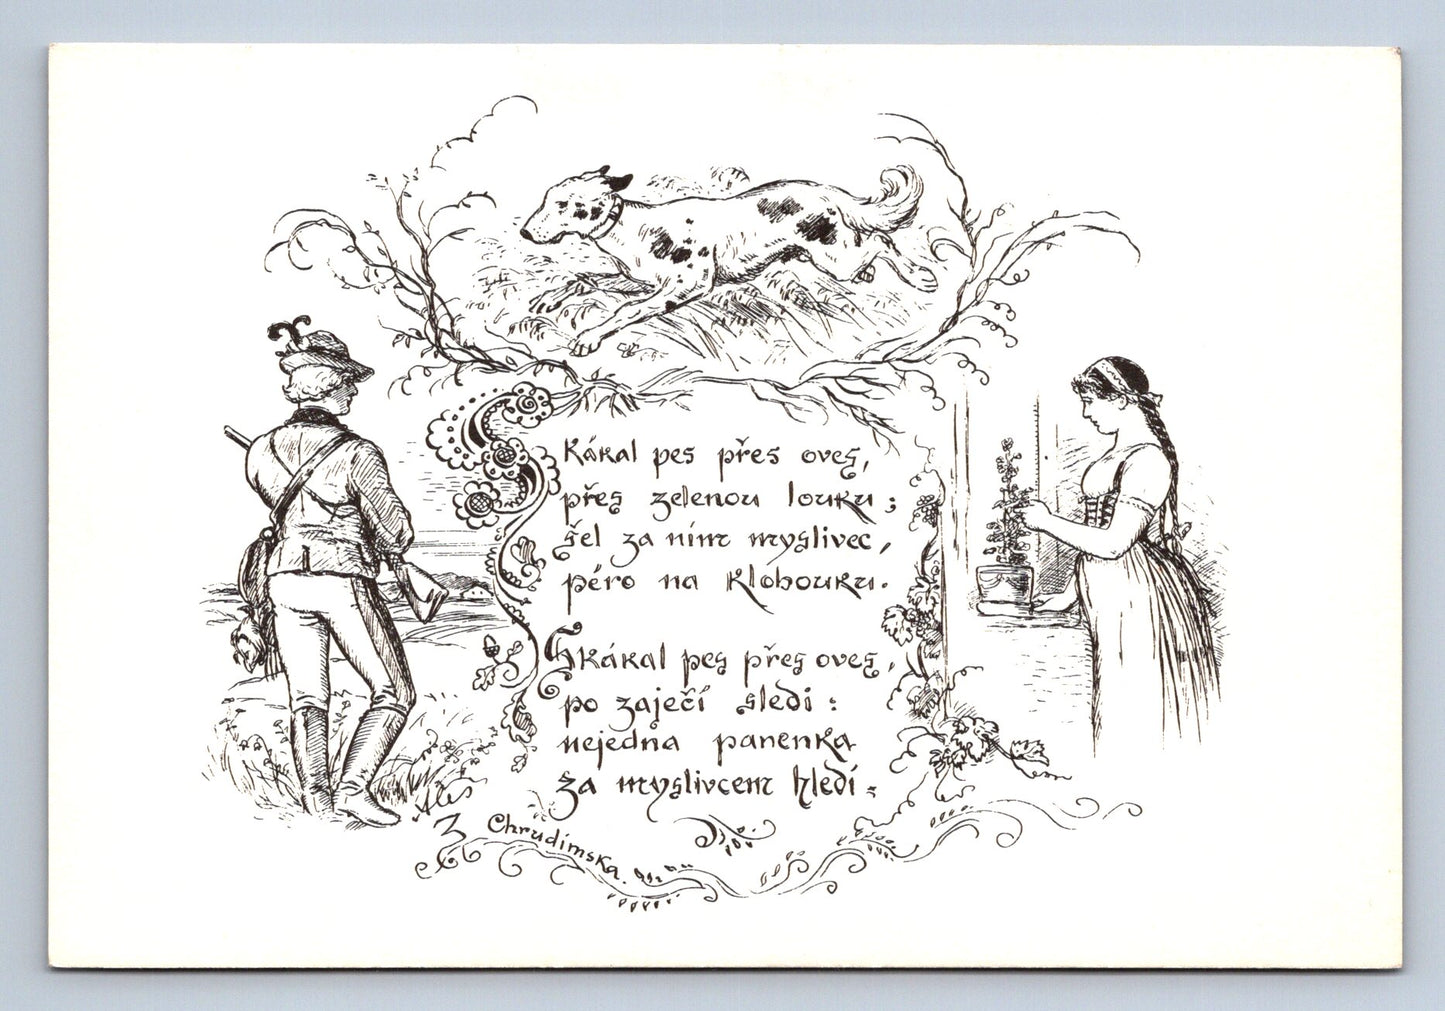 Skákal pes přes oves,
přes zelenou louku;
šel za ním myslivec,
péro na klobouku.
Skákal pes přes oves,
po zaječí sledi:
nejedna panenka
za myslivcem hledí:
Aleš
Z Chrudimska.